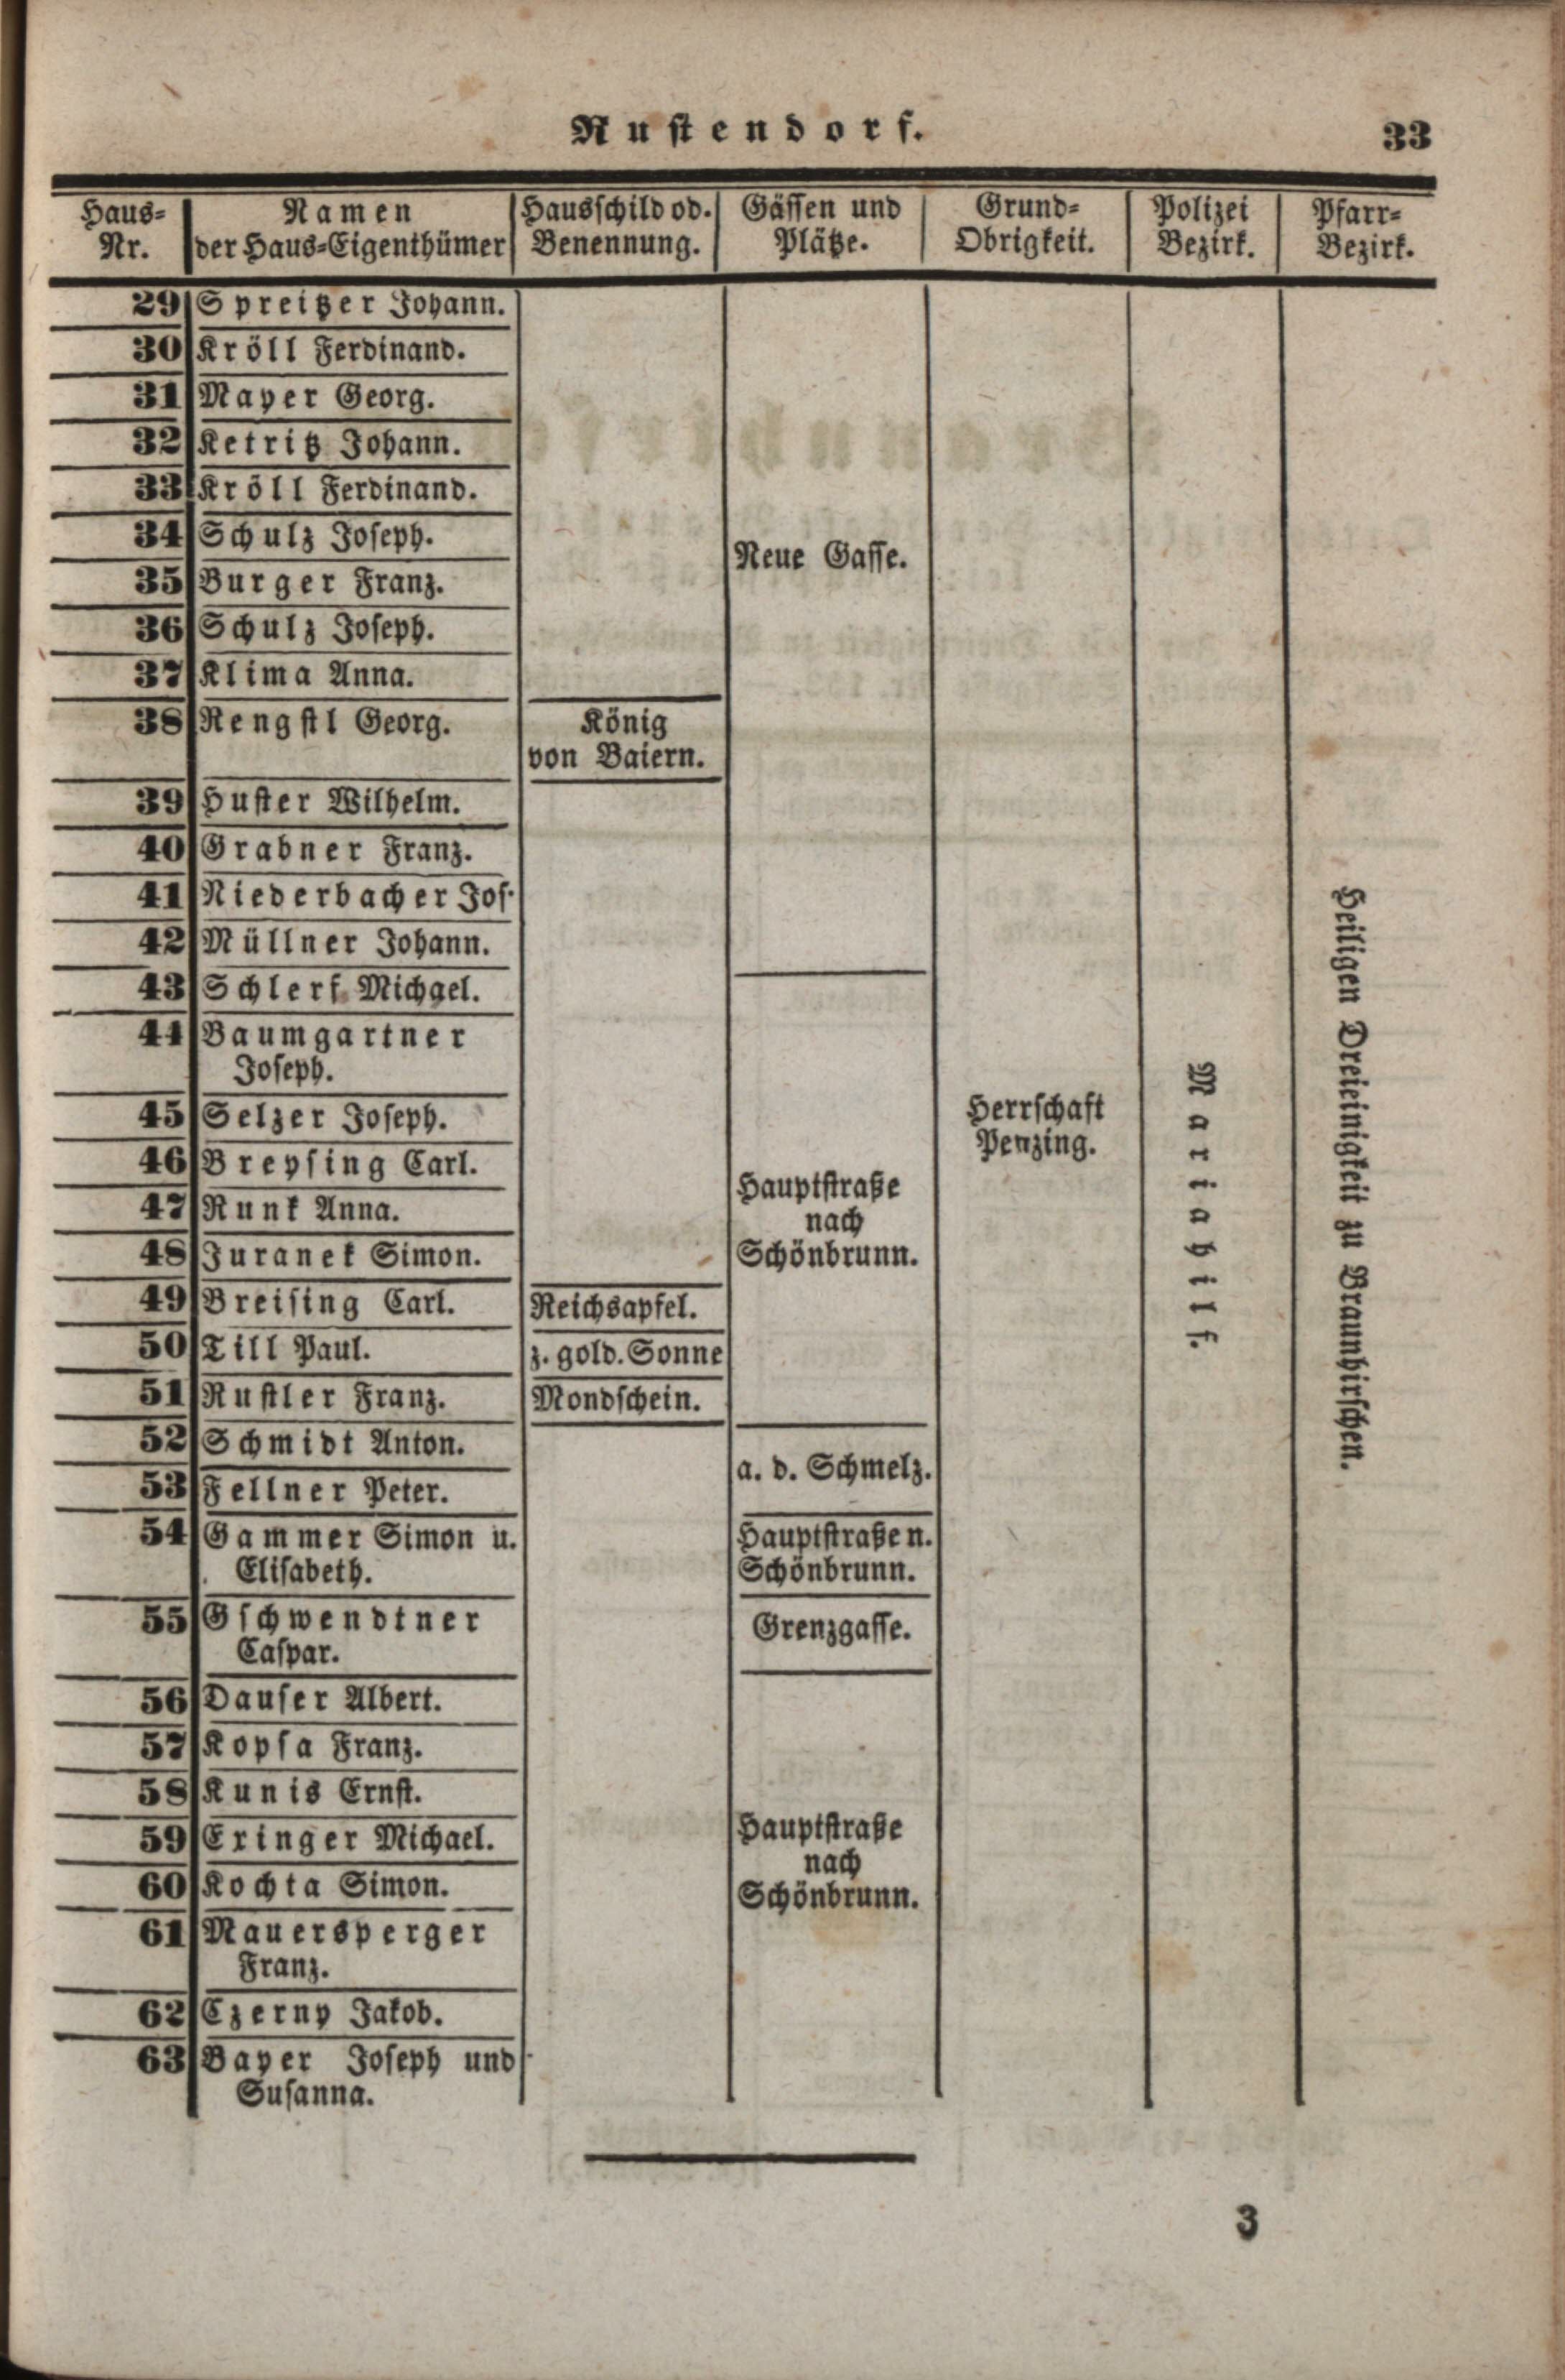 Rustendorf.
33
Haus-Nr.
Namen der Haus-Eigenthümer
Hausschild od. Benennung.
Gässen und Plätze.
Grund-Obrigkeit.
Polizei Bezirk.
Pfarr-Bezirk.
29 Spreitzer Johann.
30 Kröll Ferdinand.
31 Mayer Georg.
32 Ketritz Johann.
33 Kröll Ferdinand.
34 Schulz Joseph.
Neue Gasse.
35 Burger Franz.
36 Schulz Joseph.
37 Klima Anna.
38 Rengstl Georg.
König
von Baiern.
39 Huster Wilhelm.
40 Grabner Franz.
41 Niederbacher Jos.
42 Müllner Johann.
43 Schlerf Michael.
44 Baumgartner
Joseph.
45 Selzer Joseph.
Herrschaft
Penzing.
Mariahilf.
Heiligen Dreieinigkeit zu Braunhirschen.
46 Breysing Carl.
47 Runk Anna.
Hauptstraße
nach
Schönbrunn.
48 Juranek Simon.
49 Breising Carl. Reichsapfel.
50 Till Paul. z. gold. Sonne
51 Rustler Franz. Mondschein.
52 Schmidt Anton.
a. d. Schmelz.
53 Fellner Peter.
54 Gammer Simon u. Hauptstraße n.
Elisabeth. Schönbrunn.
55 Gschwendtner
Grenzgasse.
Caspar.
56 Dauser Albert.
57 Kopsa Franz.
58 Kunis Ernst.
59 Eringer Michael.
Hauptstraße
nach
Schönbrunn.
60 Kochta Simon.
61 Mauersperger
Franz.
62 Czerny Jakob.
63 Bayer Joseph und
Susanna.
3